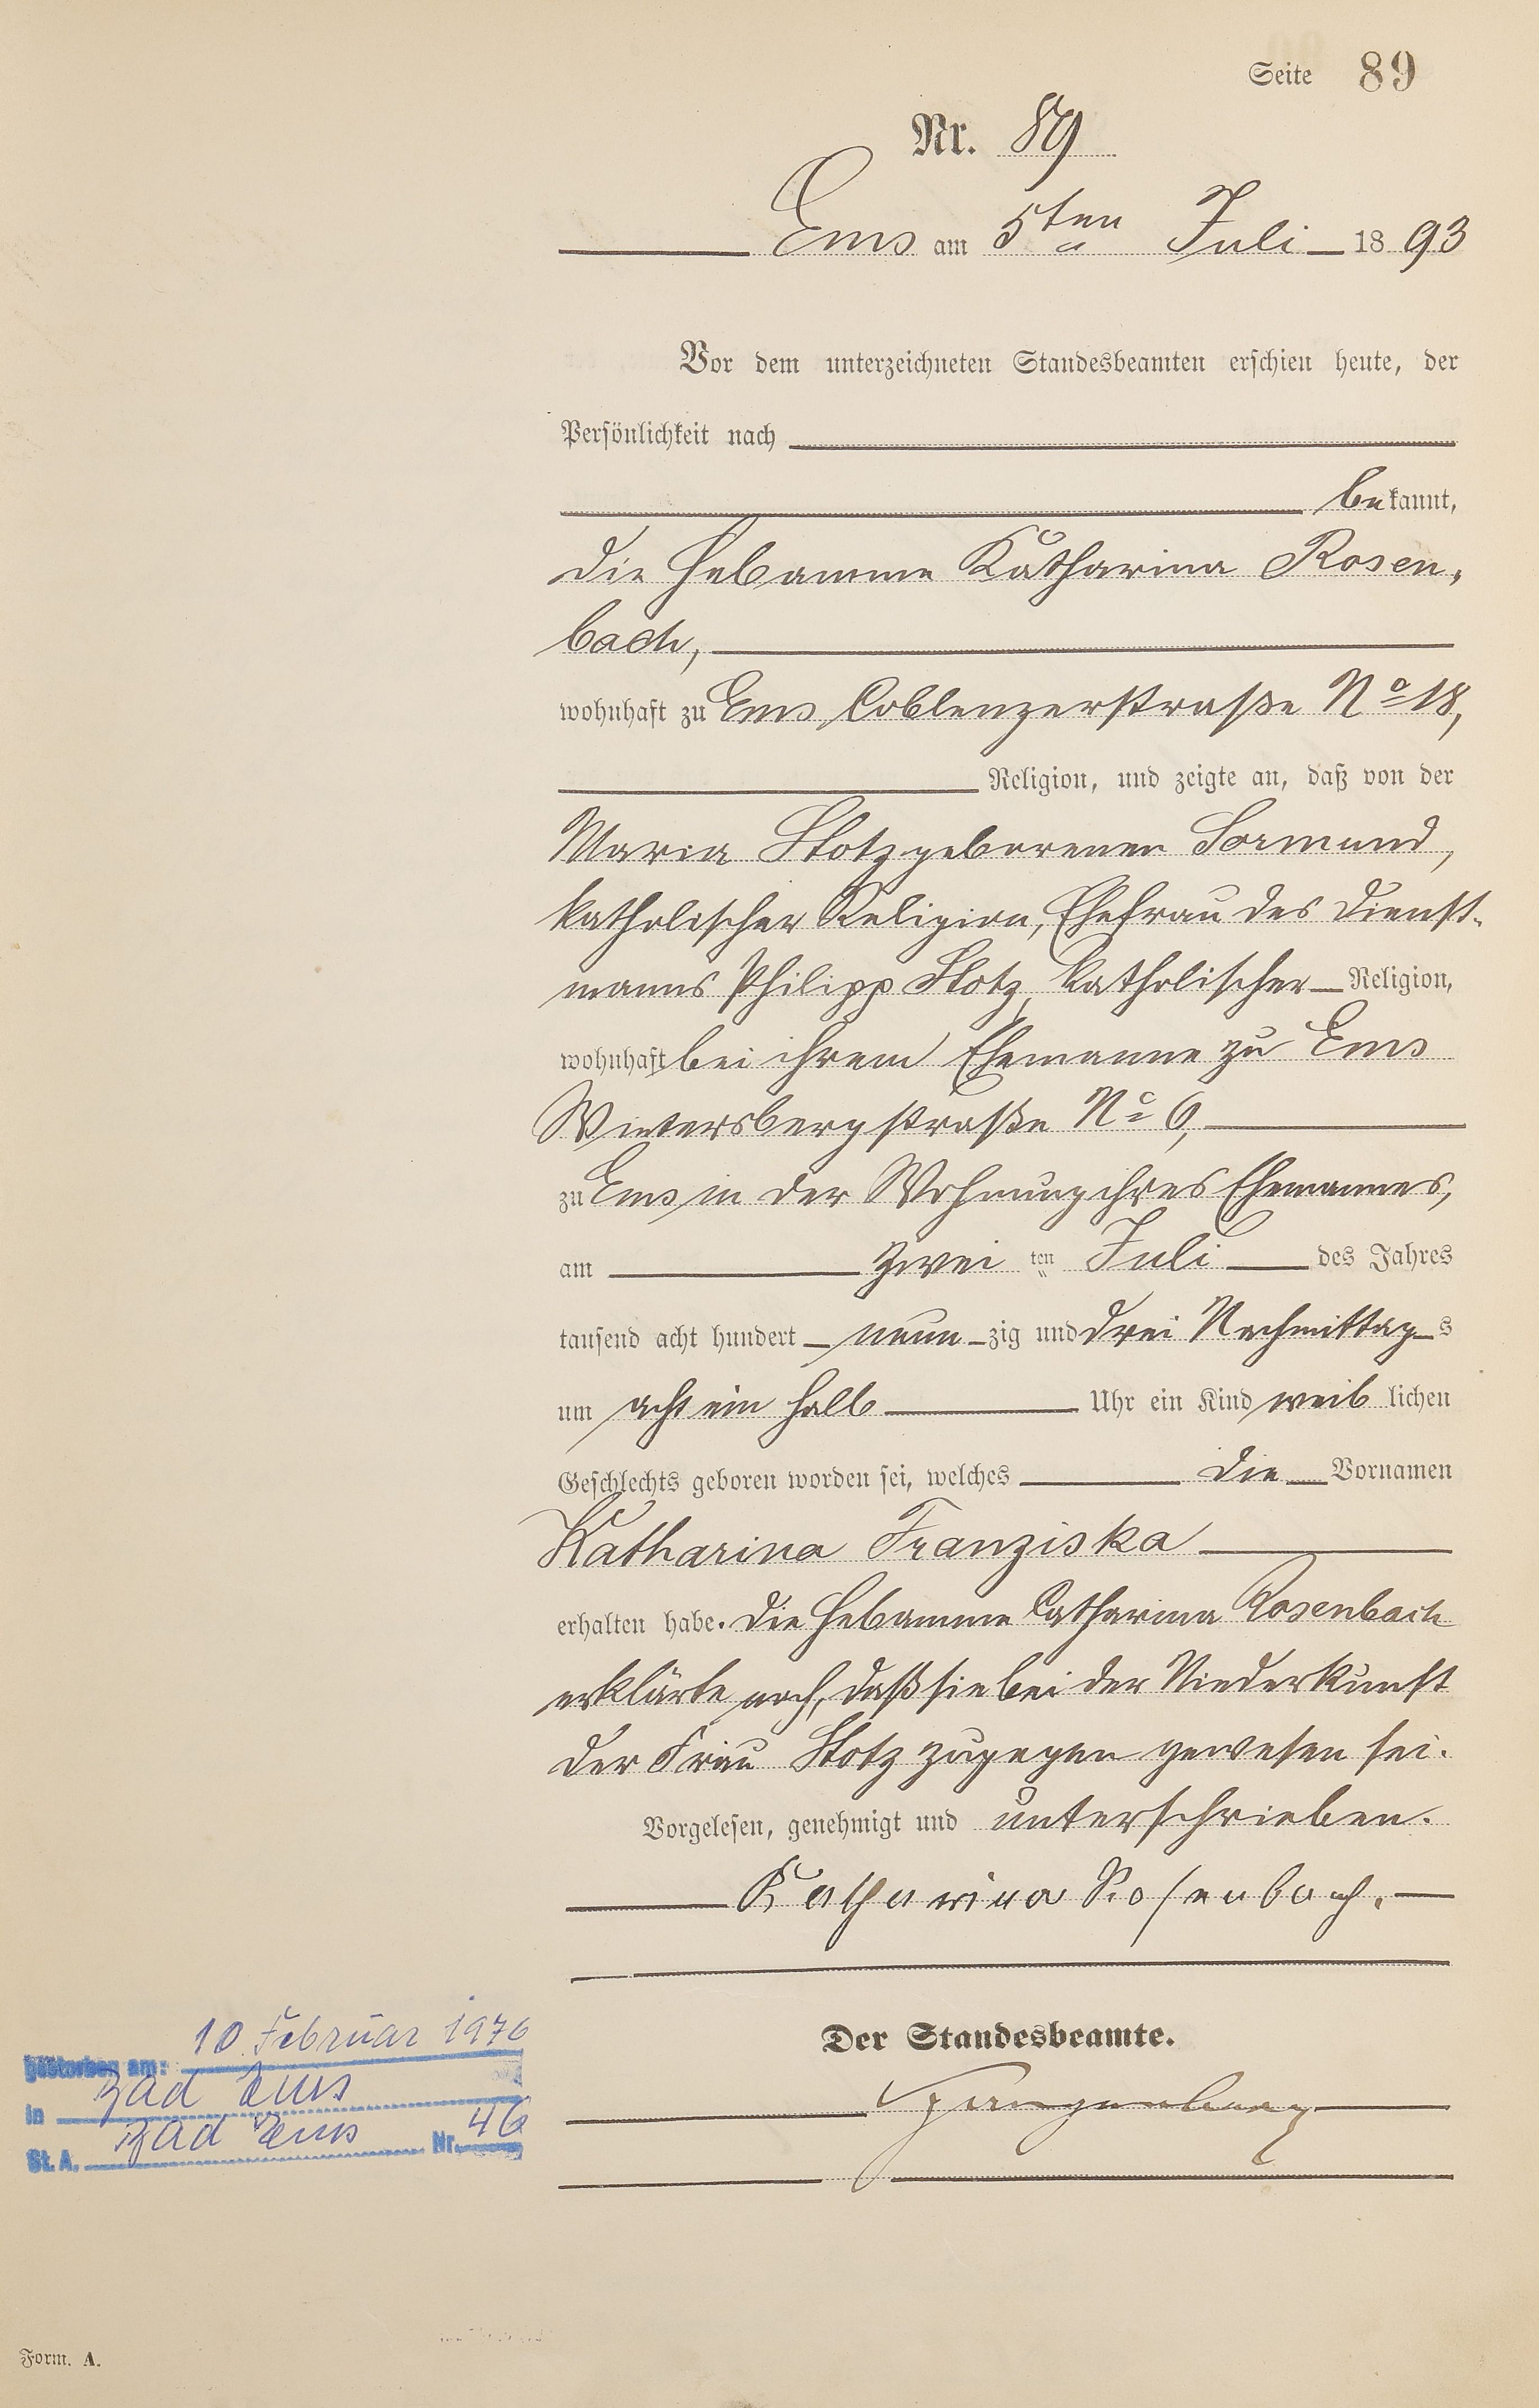 Seite 89
Nr. 89
Ems am 5ten Juli 1893
Vor dem unterzeichneten Standesbeamten erschien heute, der
Persönlichkeit nach
bekannt,
die Hebamme Katharina Rosen-
bach,
wohnhaft zu Ems Coblenzerstraße No 18,
Religion, und zeigte an, daß von der
Maria Stotz geborenen Sormund,
katholischer Religion, Ehefrau des Dienst-
manns Philipp Stotz, katholischer Religion,
wohnhaft bei ihrem Ehemanne zu Ems
Wintersbergstraße No 6,
zu Ems in der Wohnung ihres Ehemannes,
am zwei ten Juli des Jahres
tausend acht hundert neun zig und drei Nachmittag s
um acht ein halb Uhr ein Kind weib lichen
Geschlechts geboren worden sei, welches die Vornamen
Katharina Franziska
erhalten habe. Die Hebamme Catharina Rosenbach
erklärte noch, daß sie bei der Niederkunft
der Frau Stotz zugegen gewesen sei.
Vorgelesen, genehmigt und unterschrieben.
Katharina Rosenbach.
Der Standesbeamte.
Spangenberg
gestorben am: 10. Februar 1976
in Bad Ems
St. A. Bad Ems Nr. 46
Form. A.